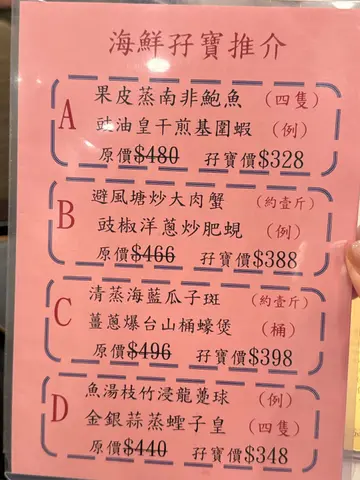 海鮮孖寶推介
A
果皮蒸南非鮑魚 (四隻)
豉油皇干煎基圍蝦 (例)
原價$480 孖寶價$328
B
避風塘炒大肉蟹 (約壹斤)
豉椒洋蔥炒肥蜆 (例)
原價$466 孖寶價$388
C
清蒸海藍瓜子斑 (約壹斤)
薑蔥爆台山桶蠔煲 (桶)
原價$496 孖寶價$398
D
魚湯枝竹浸龍躉球 (例)
金銀蒜蒸蟶子皇 (四隻)
原價$440 孖寶價$348